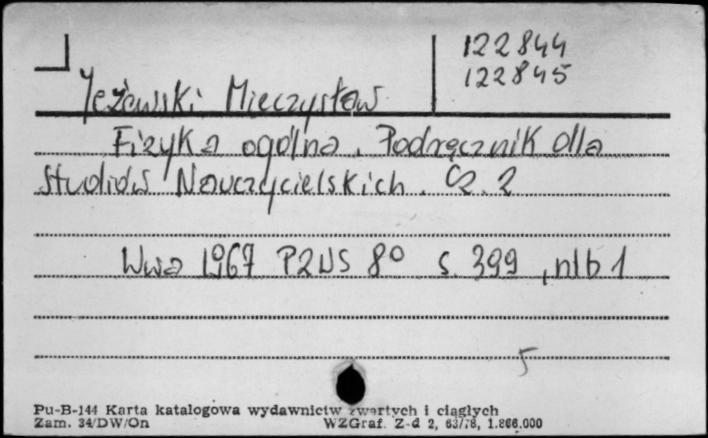 122844
122845
Jeżewski Mieczysław
Fizyka ogólna. Podręcznik dla
studiów Nauczycielskich. Cz. 2
Wwa 1967 PZWS 8° s. 399, nlb 1
5
Pu-B-144 Karta katalogowa wydawnictw zwartych i ciągłych
Zam. 34/DW/On WZGraf. Z-d 2, 63/78, 1.866.000